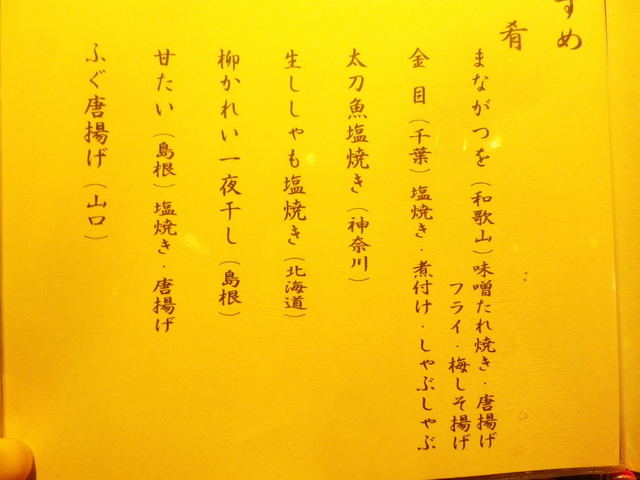 すめ
肴
まながつを（和歌山）味噌たれ焼き・唐揚げ
フライ・梅しそ揚げ
金目（千葉）塩焼き・煮付け・しゃぶしゃぶ
太刀魚塩焼き（神奈川）
生ししゃも塩焼き（北海道）
柳かれい一夜干し（島根）
甘たい（島根）塩焼き・唐揚げ
ふぐ唐揚げ（山口）